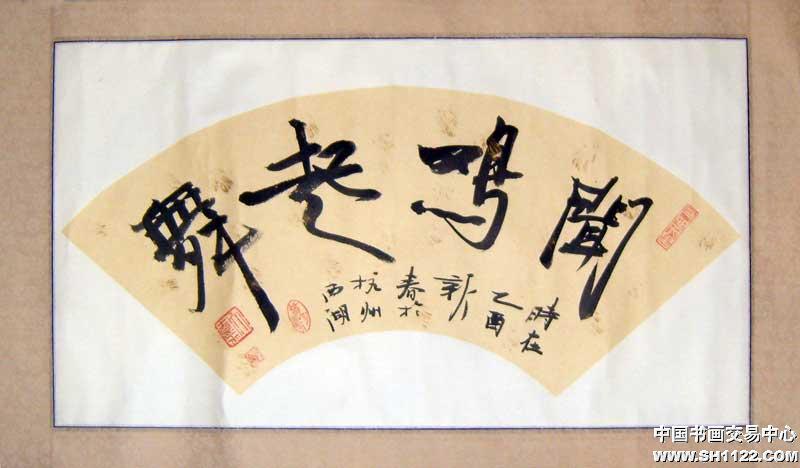 聞鳴起舞
時在
乙酉
新
春於
杭州
西湖
中国书画交易中心
www.SH1122.com